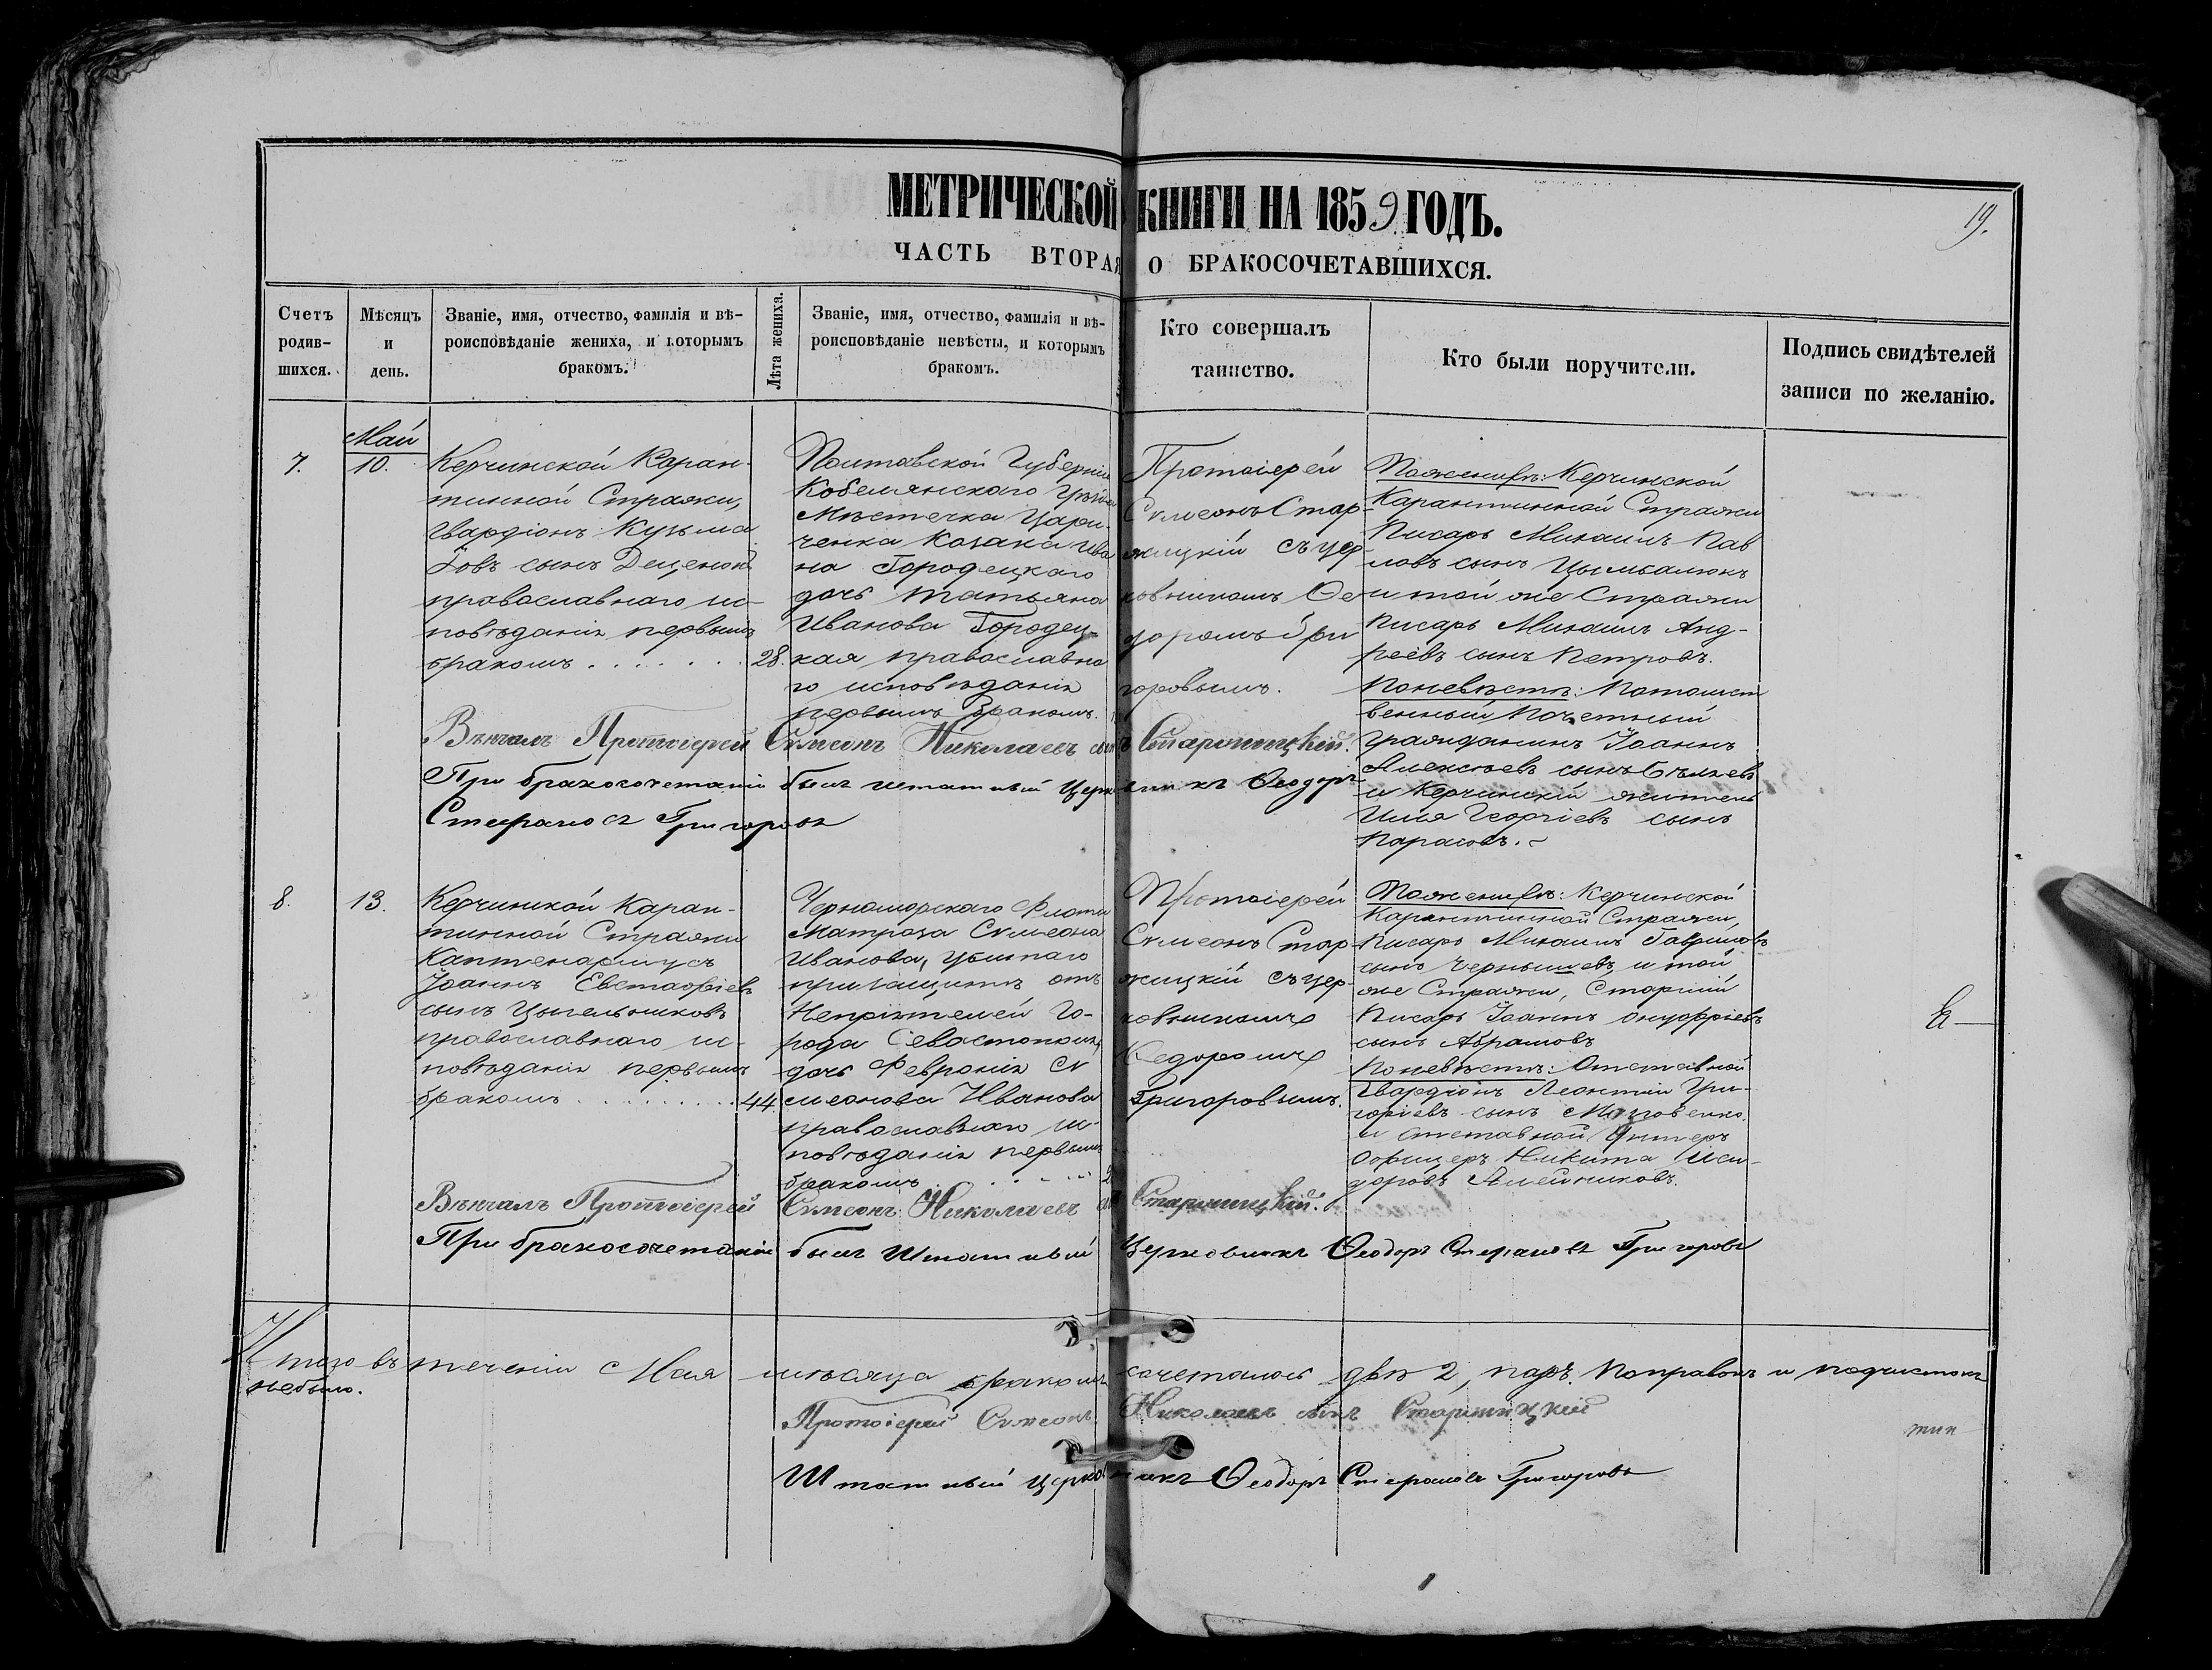 МЕТРИЧЕСКОЙ КНИГИ НА 1859 ГОДЪ.
19.
ЧАСТЬ ВТОРАЯ О БРАКОСОЧЕТАВШИХСЯ.
Счетъ
родив-
шихся.
Мѣсяцъ
и
день.
Званіе, имя, отчество, фамилія и вѣ-
роисповѣданіе жениха, и которымъ
бракомъ.
Лѣта жениха.
Званіе, имя, отчество, фамилія и вѣ-
роисповѣданіе невѣсты, и которымъ
бракомъ.
Кто совершалъ
таинство.
Кто были поручители.
Подпись свидѣтелей
записи по желанію.
7.
Май
10.
Керчинской Каран-
тинной Стражи,
Гвардіонъ Кузьма
Іовъ сынъ
православнаго ис-
повѣданія первымъ
бракомъ
28.
Полтавской Губерніи
Кобелянскаго Уѣзда
Мѣстечка Цари-
ченка Козака Ива
на Городецкаго
дочь Татьяна
Иванова Городец-
кая православна
го исповѣданія
первымъ бракомъ.
Протоіерей
Сѵмеонъ Стар-
жицкій съ цер
ковникомъ Ѳе
доромъ Гри
горовымъ.
По женихѣ: Керчинской
Карантинной Стражи
Писарь Михаилъ Пав
ловъ сынъ Цымбалюкъ
и той же Стражи
Писарь Михаилъ Анд-
реевъ сынъ Петровъ.
По невѣстѣ: Потомст
венный Почетный
гражданинъ Іоаннъ
Алексѣевъ сынъ Бѣляевъ
и Керчинскій житель
Илія Георгіевъ сынъ
Вѣнчалъ Протоіерей Сѵмеонъ Николаевъ сынъ Старжицкій.
При бракосочетаніи былъ штатный Церковникъ Ѳеодоръ
Стефановъ Григоровъ
8.
13.
Керчинской Каран-
тинной Стражи
Каптенармусъ
Іоаннъ Евстафіевъ
сынъ
православнаго ис-
повѣданія первымъ
бракомъ
44
Черноморскаго Флота
Матроза Сѵмеона
Иванова, убитаго
при защитѣ отъ
Непріятелей Го-
рода Севастополя,
дочь Февронія Сѵ
меонова Иванова
православнаго ис-
повѣданія первымъ
бракомъ
Протоіерей
Сѵмеонъ Стар-
жицкій съ цер-
ковникомъ
Ѳедоромъ
Григоровымъ.
По женихѣ: Керчинской
Карантинной Стражи,
Писарь Михаилъ Гавриловъ
сынъ Чернышевъ, и той
же Стражи, Старшій
Писарь Іоаннъ Онуфріевъ
сынъ Абрамовъ
По невѣстѣ: Отставной
Гвардіонъ Леонтій Гри-
горіевъ сынъ
и отставной Унтеръ
Офицеръ Никита Иси-
доровъ Алейниковъ.
Вѣнчалъ Протоіерей Сѵмеонъ Николаевъ Старжицкій.
При бракосочетаніи былъ Штатный Церковникъ Ѳеодоръ Стефановъ Григоровъ
Итого въ теченіи Мая мѣсяца бракомъ сочеталось двѣ 2, паръ. Поправокъ и подчистокъ
небыло.
Протоіерей Сѵмеонъ Николаевъ сынъ Старжицкій
Штатный Церковникъ Ѳеодоръ Стефановъ Григоровъ